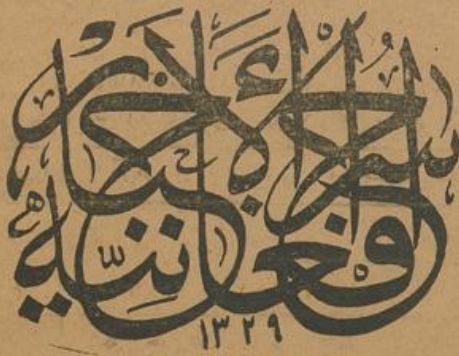 سراج الأخبار
افغانیه
۱۳۲۹